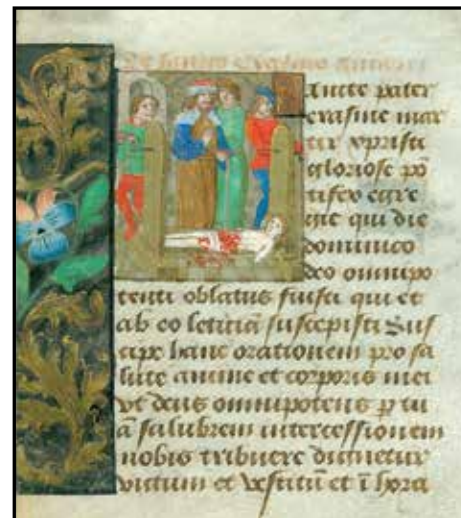 De sancto erasmo
ancte pater
erasme mar
tir xpristi
gloriose pō
tifex egre
gie qui die
dominico
deo omnipo
tenti oblatus fuisti qui et
ab eo leticiā suscepisti Sus
cipe hanc orationem pro sa
lute anime et corporis mei
vt deus omnipotens p tu
ā salubrem intercessionem
nobis tribuere dignetur
victum et vestitū et ī hora